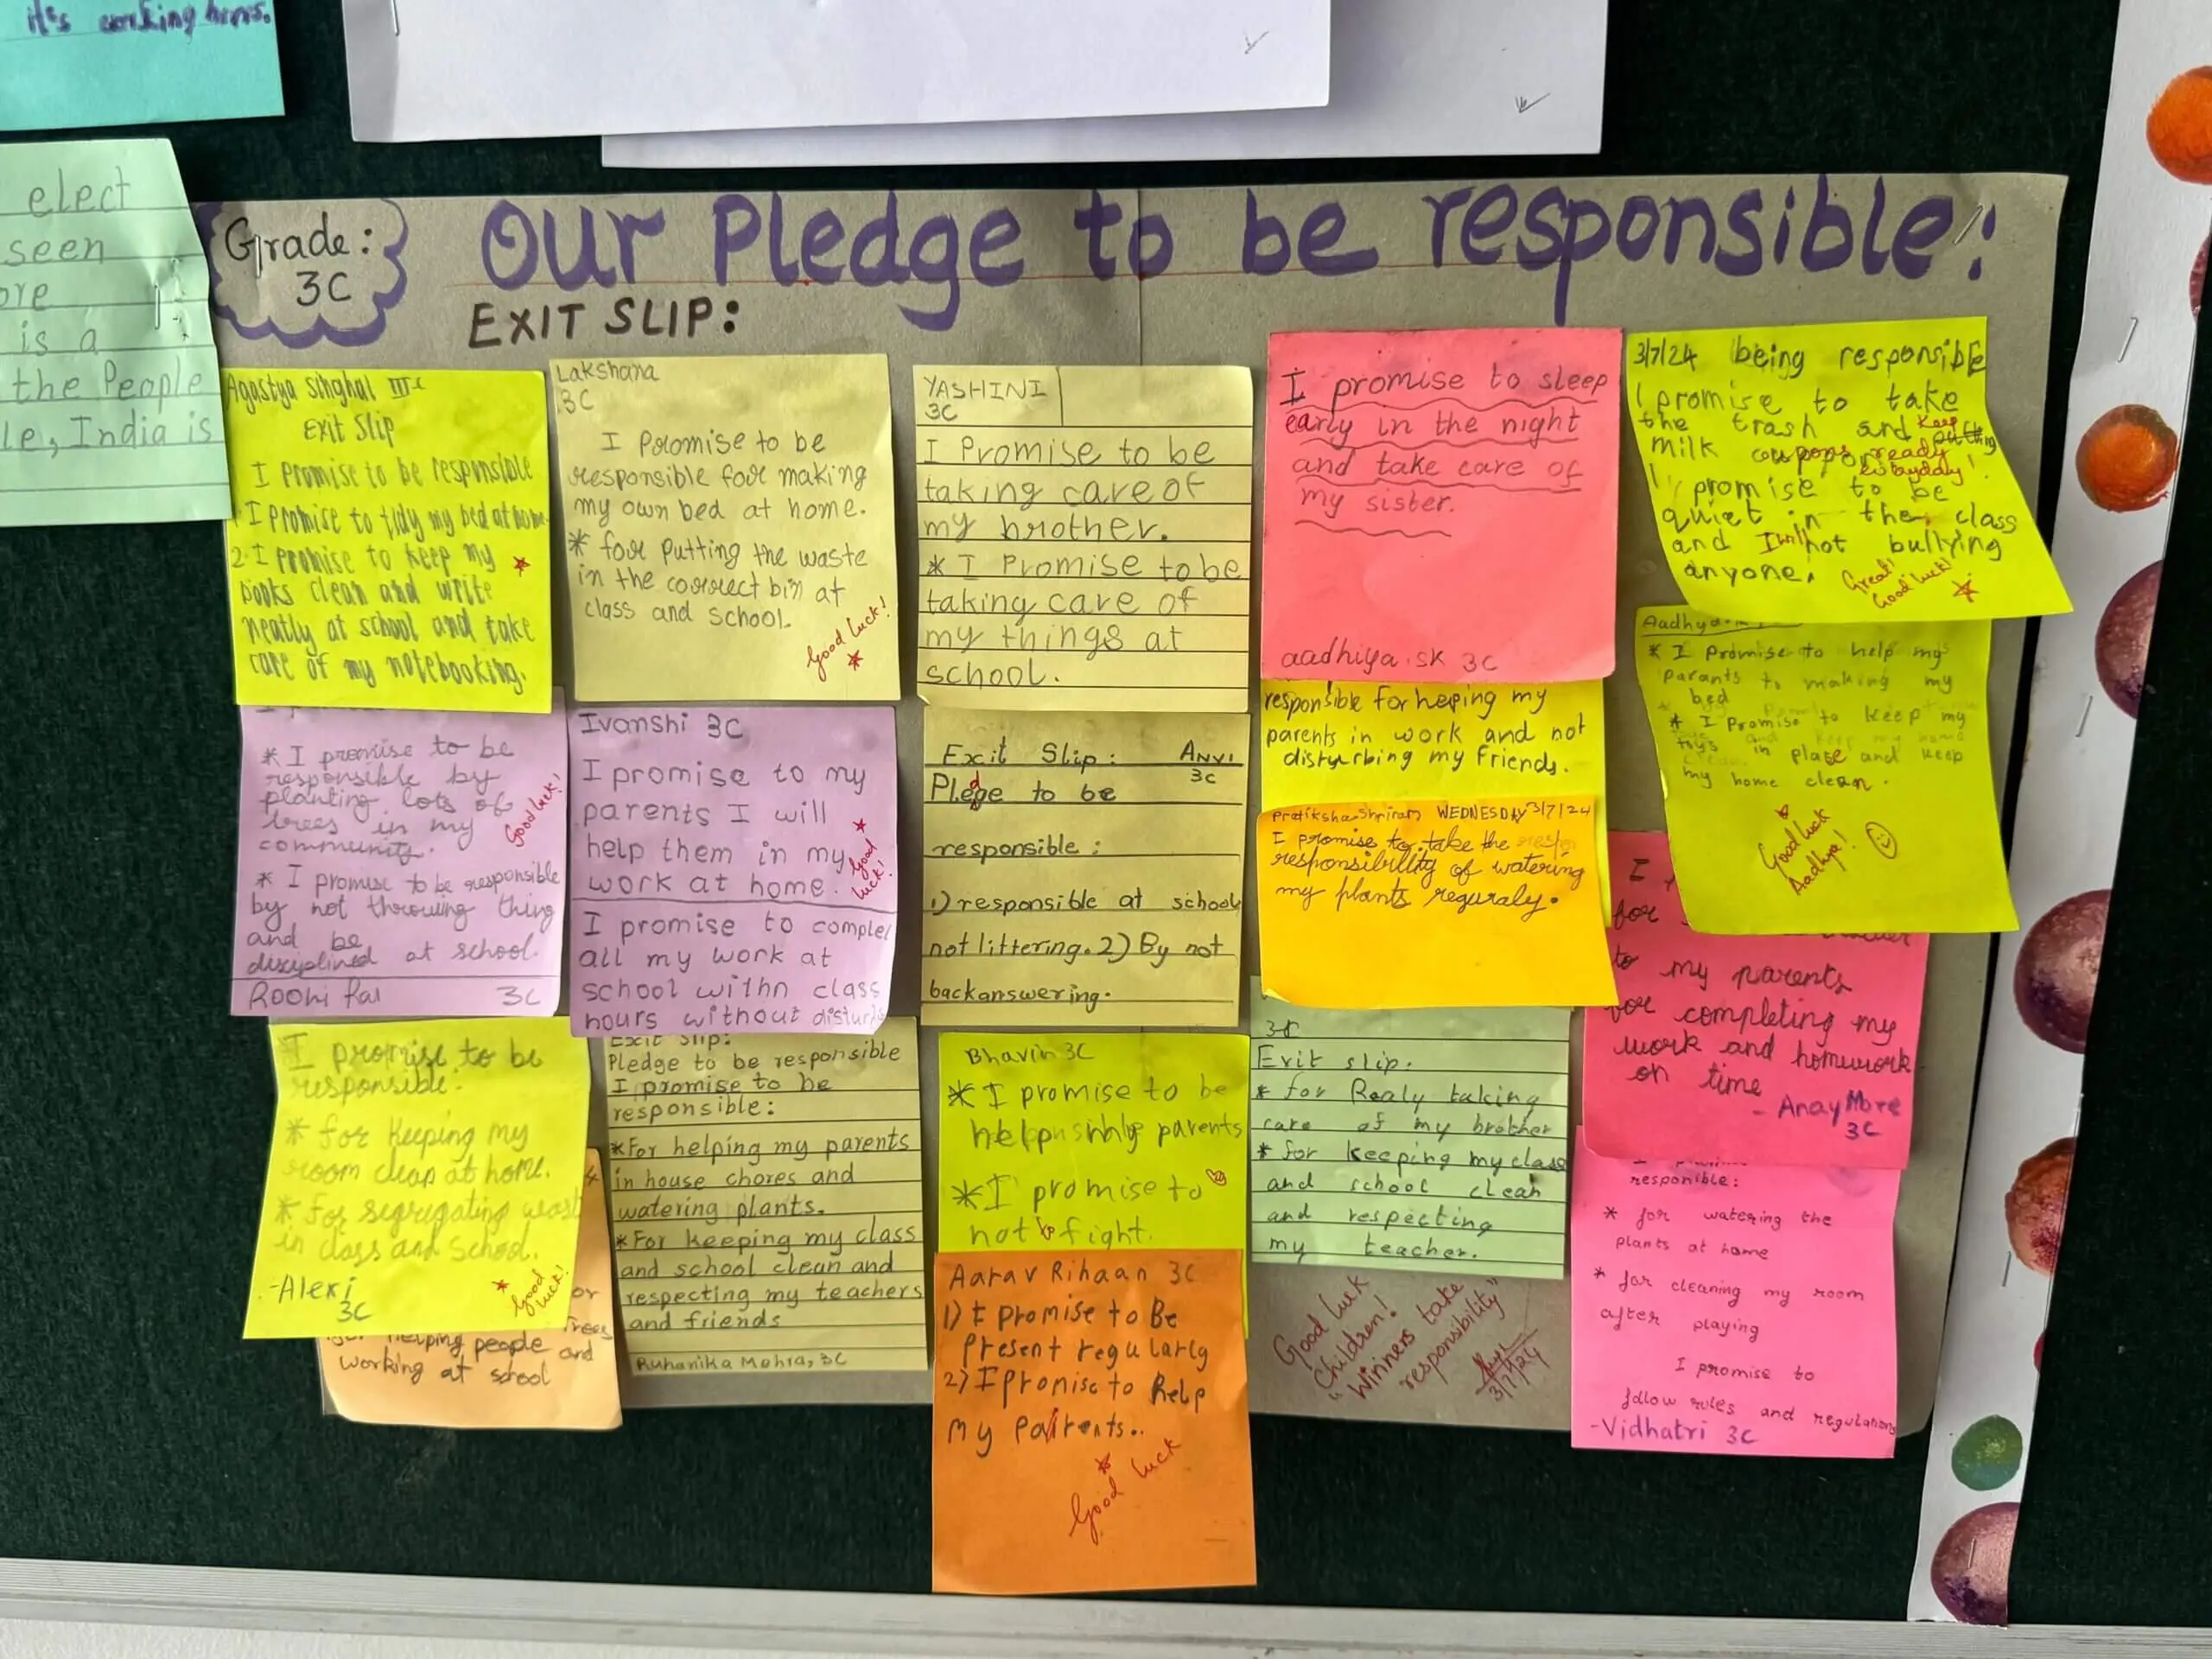 it's working hours.
elect
seen
ore
is a
the People
le, India is
Grade:
3C
Our Pledge to be responsible:
EXIT SLIP:
Agastya Singhal III C
Exit Slip
I Promise to be responsible
1 I Promise to tidy my bed at home.
2. I promise to keep my
books clean and write
neatly at school and take
care of my notebooking.
Lakshana
3C
I Promise to be
responsible for making
my own bed at home.
* for putting the waste
in the correct bin at
class and school.
Good luck!
YASHINI
3C
I Promise to be
taking care of
my brother.
* I Promise to be
taking care of
my things at
school.
I promise to sleep
early in the night
and take care of
my sister.
aadhiya.SK 3C
3/7/24 being responsible
I promise to take
the trash and keep
milk coupons ready
everyday!
I promise to be
quiet in the class
and I will not bullying
anyone.
Great!
Good luck!
* I promise to be
responsible by
planting lots of
trees in my
community.
* I promise to be responsible
by not throwing thing
and be
disciplined at school.
Good luck!
Roohi Rai 3C
Ivanshi 3C
I promise to my
parents I will
help them in my
work at home.
Good
luck!
I promise to complet
all my work at
school withn class
hours without disturb
Exit Slip: Anvi
3C
Pledge to be
responsible:
1) responsible at school
not littering. 2) By not
backanswering.
responsible for heping my
parents in work and not
disturbing my friends.
Pratiksha Shriram WEDNESDAY 3/7/24
I promise to take the
responsibility of watering
my plants reguraly.
Aadhya
* I Promise to help my
parants to making my
bed
* I Promise to keep my
toys in place and keep
my home clean.
Good luck
Aadhya!
I
for
to my parents
for completing my
work and homework
on time
- Anay More
3C
I promise to be
responsible.
* for keeping my
room clean at home.
* for segregating wast
in class and school.
-Alexi
3C
Good
luck!
or
Trees
for helping people and
working at school
Exit Slip:
Pledge to be responsible
I promise to be
responsible:
*For helping my parents
in house chores and
watering plants.
*For keeping my class
and school clean and
respecting my teachers
and friends
Ruhanika Mohra, 3C
Bhavin 3C
* I promise to be
help my parents
* I promise to
not to fight.
Aarav Rihaan 3C
1) I promise to Be
present regularly
2) I promise to help
my parents..
Good luck
3C
Exit slip.
* for Realy taking
care of my brother
* for keeping my class
and school clean
and respecting
my teacher.
Good luck
Children!
"Winners take
responsibility"
3/7/24
responible:
* for watering the
plants at home
* for cleaning my room
after playing
I promise to
follow rules and regulations
-Vidhatri 3C